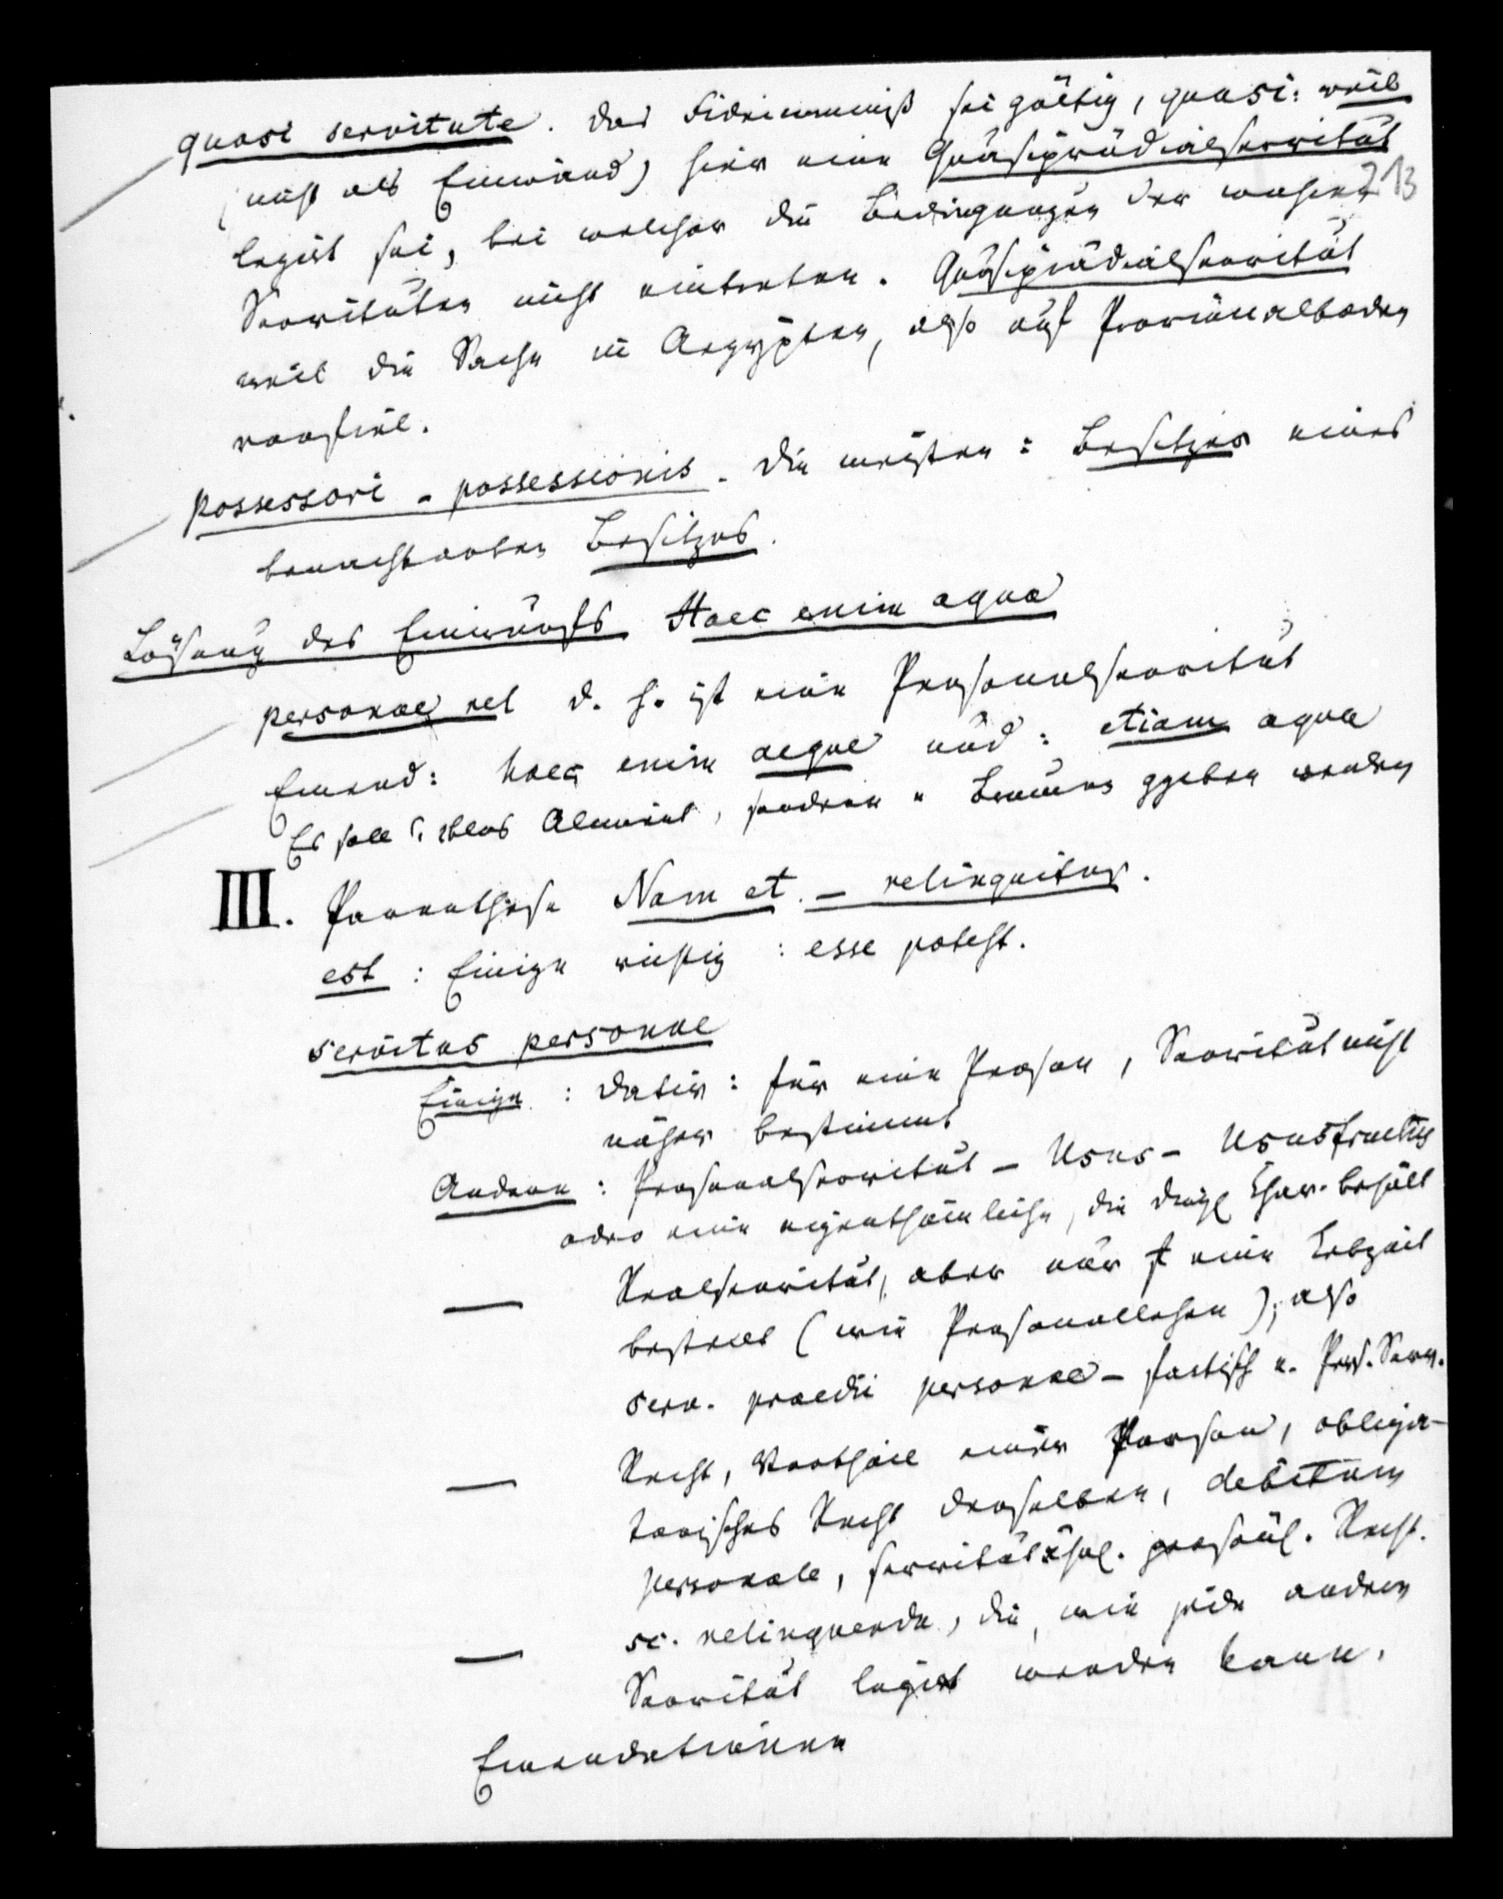 quasi servitute. Das Fideicommiß sei gültig, quasi: weil
(nicht als Einwand) hier eine Quasiprädialservitut
213
legirt sei, bei welcher die Bedingungen der wahren
Servituten nicht eintreten. Quasiprädialservitut
weil die Sache in Aegypten, also auf Provinzialboden
vorfiel.
possessori - possessionis. Die meisten: Besitzer eines
benachbarten Besitzes.
Lösung des Einwurfs Haec enim aqua
personae rel d. h. ist eine Personalservitut
Emend: haec enim aeque und: etiam aqua
Es soll blos Aliment, sondern Brunnen gegeben werden
III. Parenthese Nam et. - relinquitur.
est: Einige richtig: esse potest.
servitus personae
Einige: Dativ: für eine Person, Servitut nicht
näher bestimmt
Andere: Personalservitut - Usus - Ususfructus
oder eine eigenthümliche, die behält
— Realservitut, aber nur eine Lebzeit
bestellt (wie Personallehen); also
serv. praedii personae - factisch Pers. Serv.
— Recht, Vortheil einer Person, obliga-
torisches Recht derselben, debitum
personale, persönl. Recht.
— sc. relinquendi, die, wie jede andere
Servitut legirt werden kann.
Emendationen